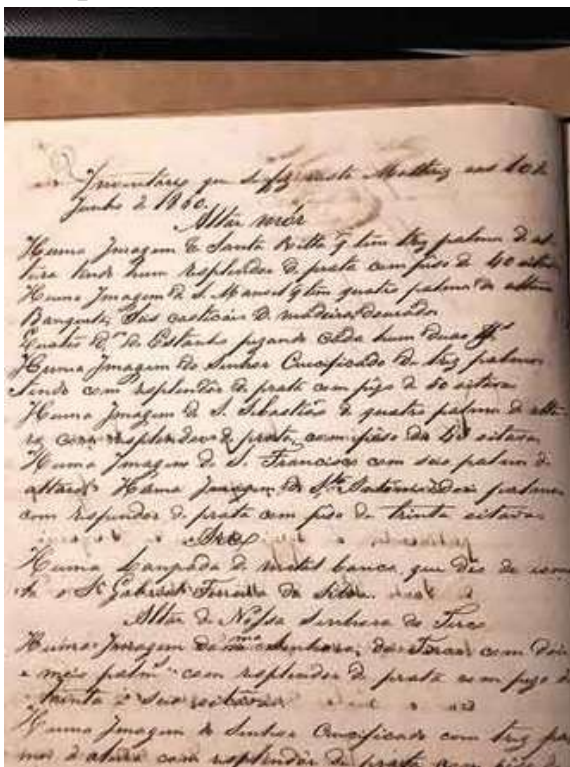 Inventario que se fez nesta Matriz aos 10 de
Junho de 1860.
Altar mór
Huma Imagem de Santa Ritta q tem trez palmos de al-
tura tendo hum resplendor de prata com piso de 40 oitavas
Huma Imagem de S. Manoel q tem quatro palmos de altura
Banqueta, Seis casticais de madeira dourados
Quatro Dos de Estanho pezando cada hum duas
Huma Imagem do Senhor Crucificado de trez palmos
tendo com resplendor de prata com pezo de 60 oitavas
Huma Imagem de S. Sebastião de quatro palmos de altu-
ra com resplendor de prata, com piso de 40 oitavas
Huma Imagem de S. Francisco com seis palmos de
altura Huma Imagem de Sto Antonio dois palmos
com resplendor de prata com piso de trinta oitavas
Huma Lampada de metal banco, que deo de
o Sr Gabriel Ferreira da Silva.
Altar de Nossa Senhora do Terço
Huma Imagem da mma Senhora do Terço com dois
e meio palms com resplendor de prata com pezo de
trinta e seis oitavas
Huma Imagem do Senhor Crucificado com trez pal-
mos d'altura com resplendor de prata com piso de